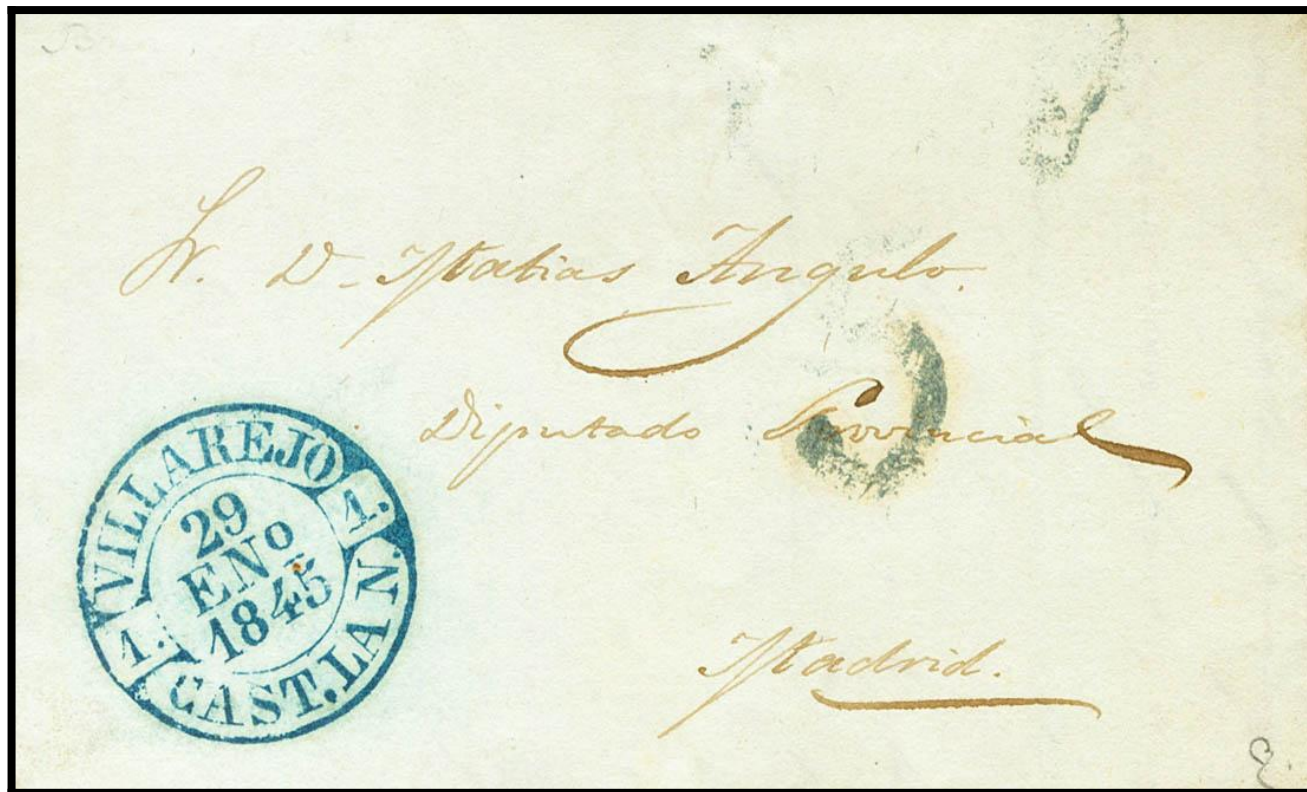 Sr. D. Matias Angulo.
Diputado Provincial
Madrid.
VILLAREJO
1.
29
ENº
1845
1.
CAST. LA N.